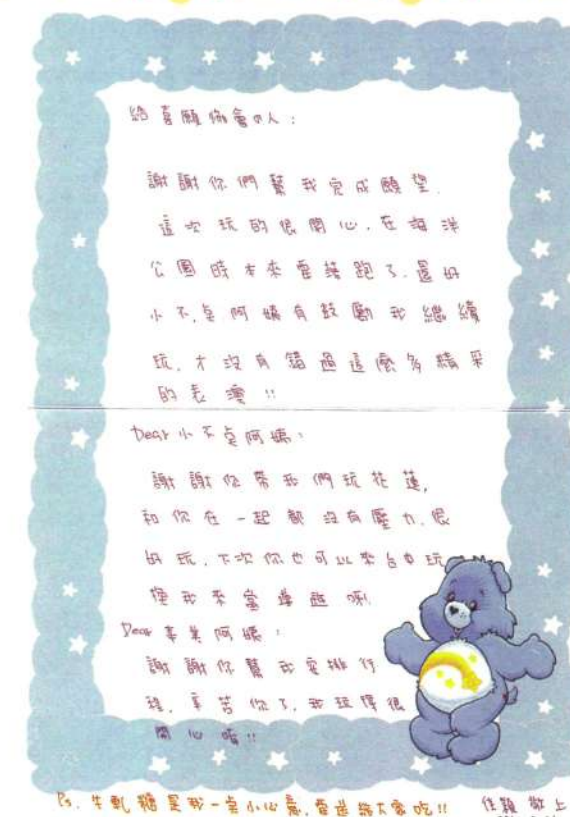 給喜願協會の人：
謝謝你們幫我完成願望.
這次玩的很開心.在海洋
公園時本來要落跑了.還好
小不點阿姨有鼓勵我繼續
玩.才沒有錯過這麼多精采
的表演!!
Dear 小不點阿姨：
謝謝你帶我們玩花蓮,
和你在一起都沒有壓力.很
好玩.下次你也可以來台中玩
換我來當導遊啊!
Dear 事美阿姨：
謝謝你幫我安排行
程.辛苦你了.我玩得很
開心喔!!
Ps. 牛軋糖是我一點小心意.要送給大家吃!!
敬上